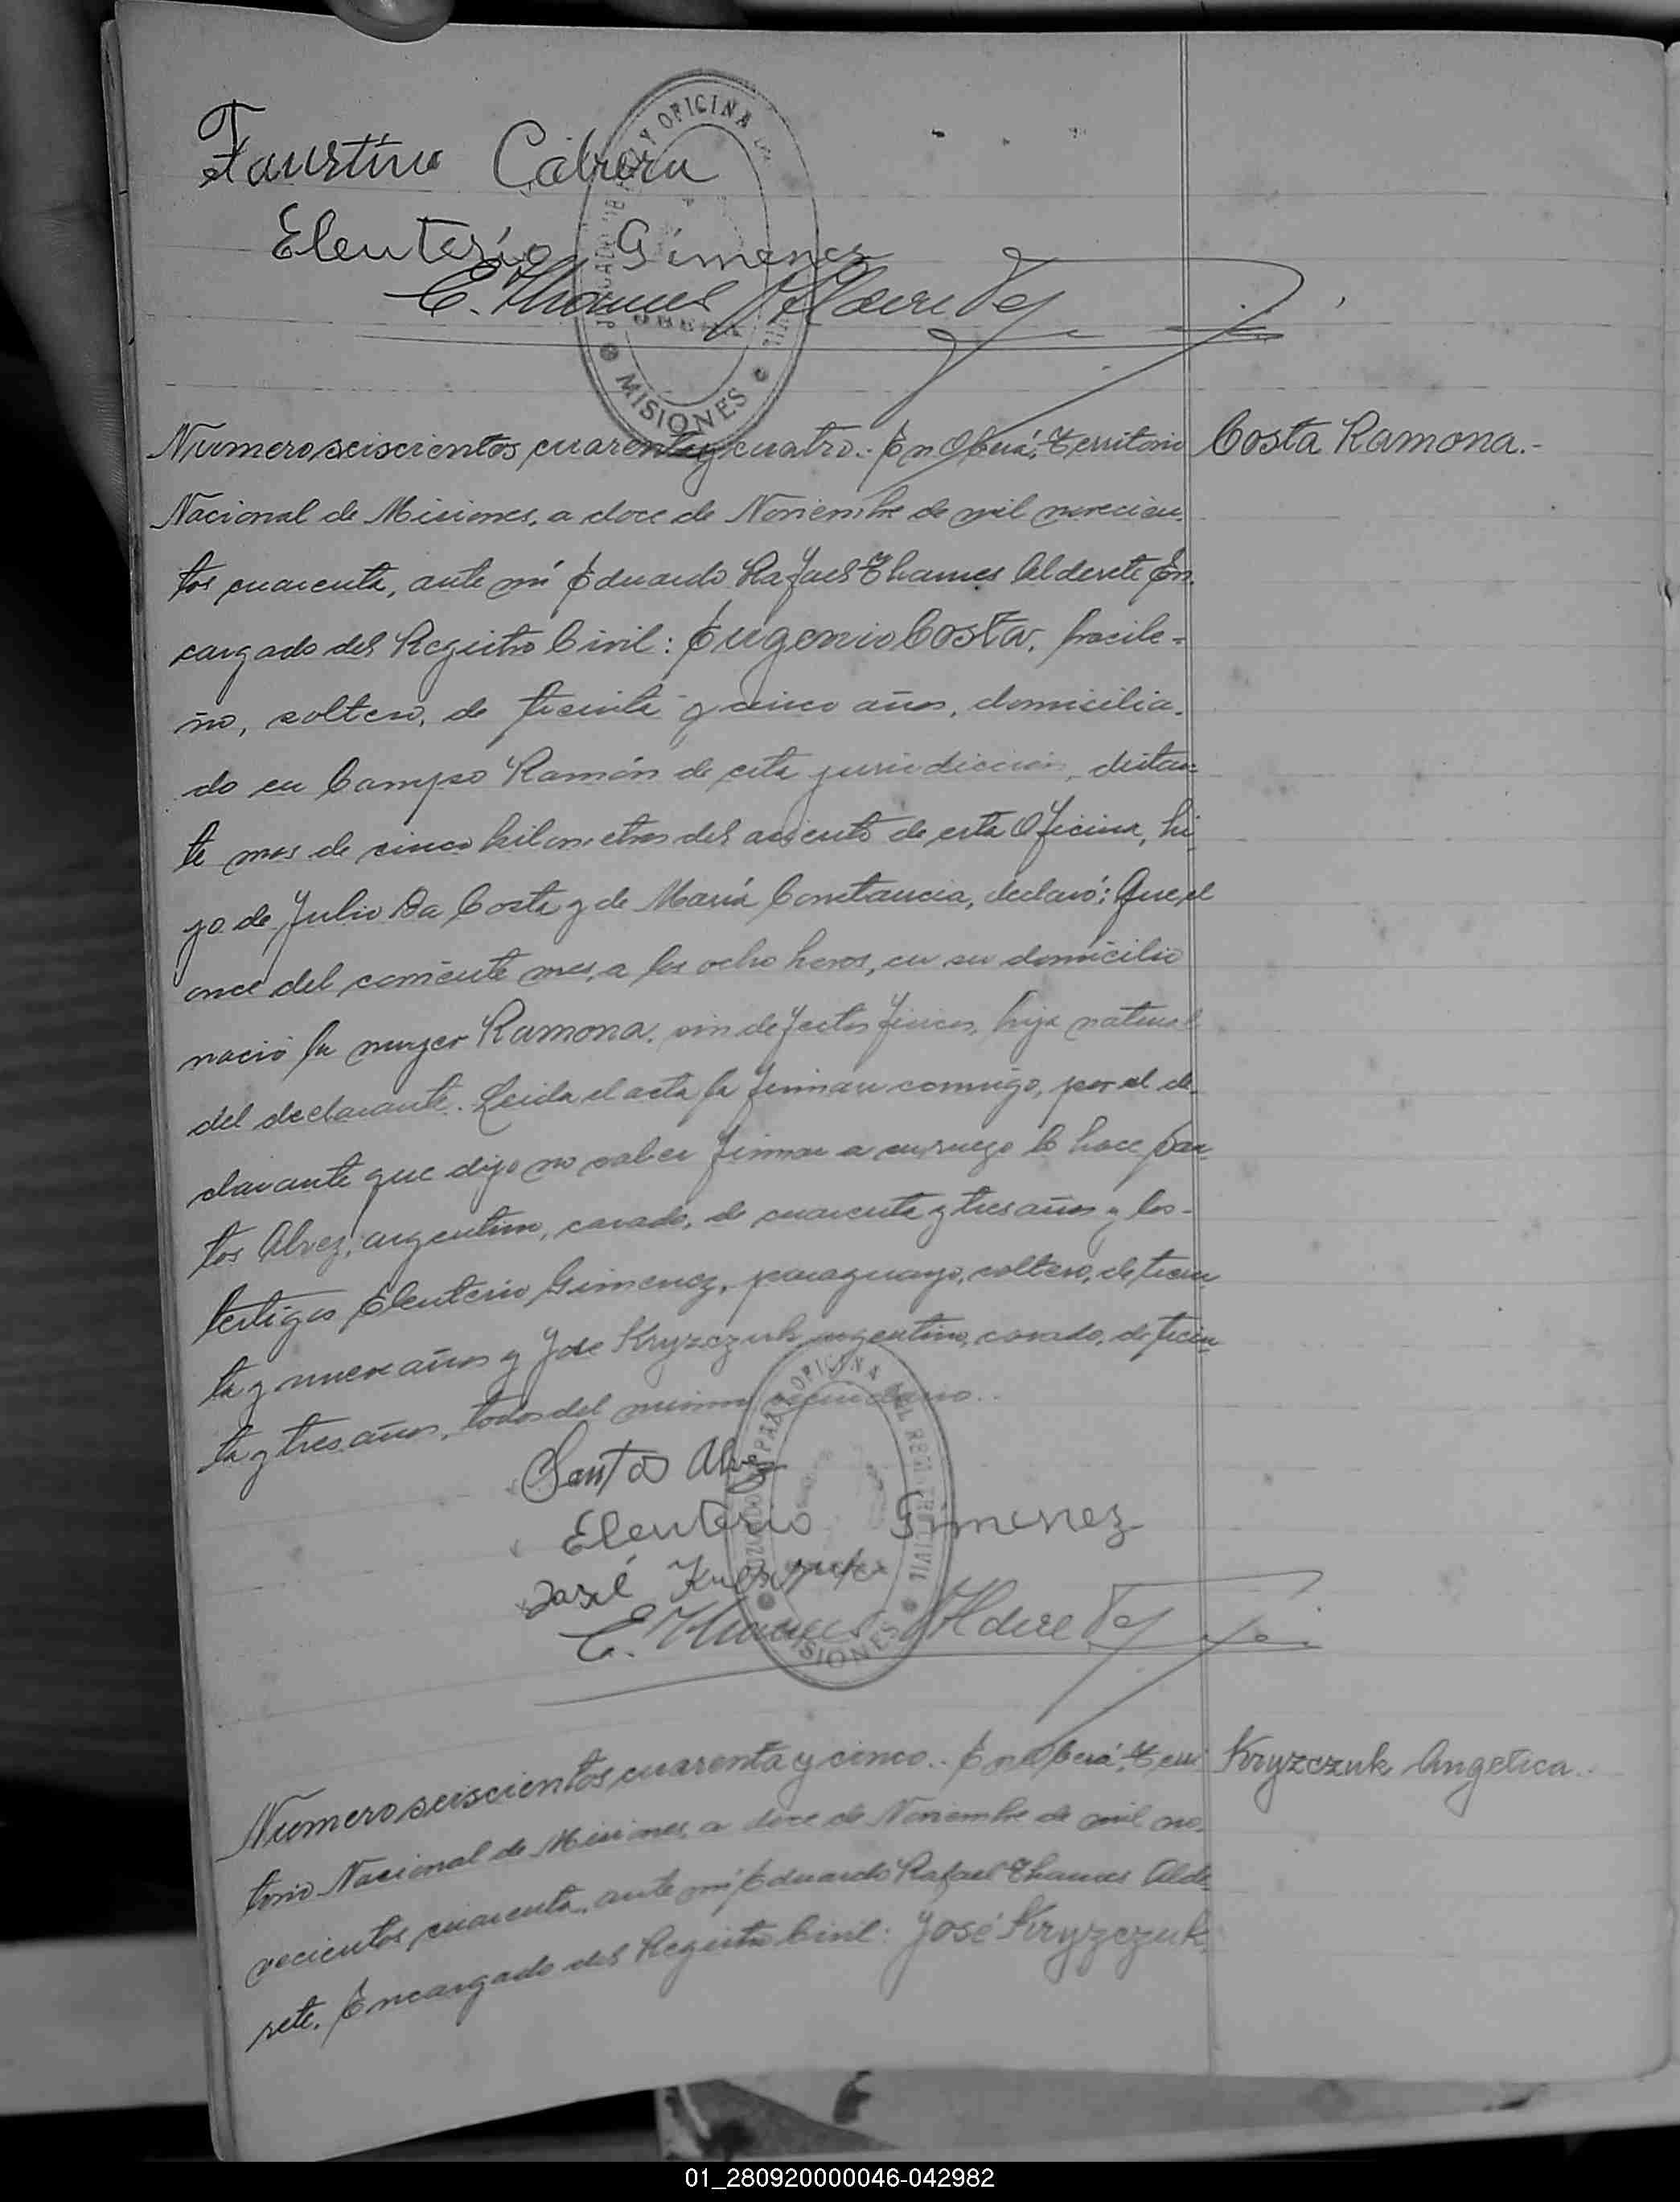 Faustino Cabrera
Eleuterio Gimenez
E. Thames Alderete
JUZGADO DE PAZ Y OFICINA DEL REGISTRO CIVIL
OBERÁ
MISIONES
Numero seiscientos cuarenta y cuatro.- En Oberá, Territorio
Costa Ramona.-
Nacional de Misiones, a doce de Noviembre de mil novecien-
tos cuarenta, ante mí Eduardo Rafael Thames Alderete En-
cargado del Registro Civil: Eugenio Costa, brasile-
ño, soltero, de treinta y cinco años, domicilia-
do en Campo Ramón de esta jurisdicción, distan-
te mas de cinco kilometros del asiento de esta Oficina, hi
jo de Julio Da Costa y de María Constancia, declaró: Que, el
once del corriente mes, a las ocho horas, en su domicilio
nació la mujer Ramona, sin defectos fisicos, hija natural
del declarante. Leida el acta la firman conmigo, por el de-
clarante que dijo no saber firmar a su ruego lo hace San-
tos Alvez, argentino, casado, de cuarenta y tres años y los-
testigos Eleuterio Gimenez, paraguayo, soltero, de trein-
ta y nueve años y José Kryzczuk argentino, casado, de trein-
ta y tres años, todos del mismo vecindario..
Santos Alvez
Eleuterio Gimenez
José
E. Thames Alderete
JUZGADO DE PAZ Y OFICINA DEL REGISTRO CIVIL
MISIONES
Numero seiscientos cuarenta y cinco.. En Oberá, Terri
Kryzczuk Angelica..
torio Nacional de Misiones, a doce de Noviembre de mil no-
vecientos cuarenta, ante mí Eduardo Rafael Thames Alde-
rete, Encargado del Registro Civil: José Kryzczuk,
01_280920000046-042982